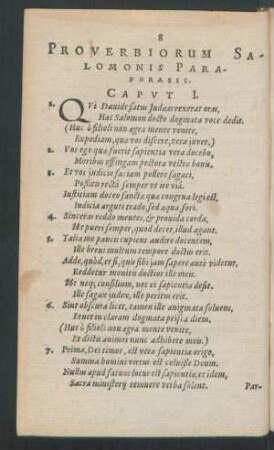 8
PROVERBIORUM SA-
LOMONIS PARA-
PHRASIS.
CAPVT I.
1. QVi Davide satus Judaas rexerat oras,
Hac Salomon docto dogmata voce dedit.
(Huc ô filioli non agra mente venite,
Expediam, qua vos discere, vera juvet.)
2. Vos ego qua fuerit sapientia vera docebo,
Moribus effingam pectora vestra bonis.
3. Et vos judicio faciam pollere sagaci,
Positis rectâ semper ut ire viâ.
Justitiam doceo sancta qua congrua legi est,
Judicia arguti trado, sed aqua fori.
4. Sinceras reddo mentes, & provida corda,
Ut puer semper, quod decet, illud agant.
5. Talia me paucis cupiens audire docentem,
Ille brevi multum tempore doctus erit.
Adde, quòd, et si, quis sibi jam sapere autè videtur,
Reddetur monitis doctior ille meis.
Ut neq; consilium, nec ei sapientia desit.
Ille sagax judex, ille peritus erit.
6. Sint obscura licet, tamen ille anigmata solvens,
Eruet in claram dogmata prisca diem.
(Huc ô filioli non agra mente venite,
Et dictis animos nunc adhibete meis.)
7. Prima, Dei timor, est vera sapientia origo,
Summa homini virtus est coluisse Deum.
Nullus apud fatuos locus est sapientia, et idem,
Sacra ministerij temnere verba solent.
Par-